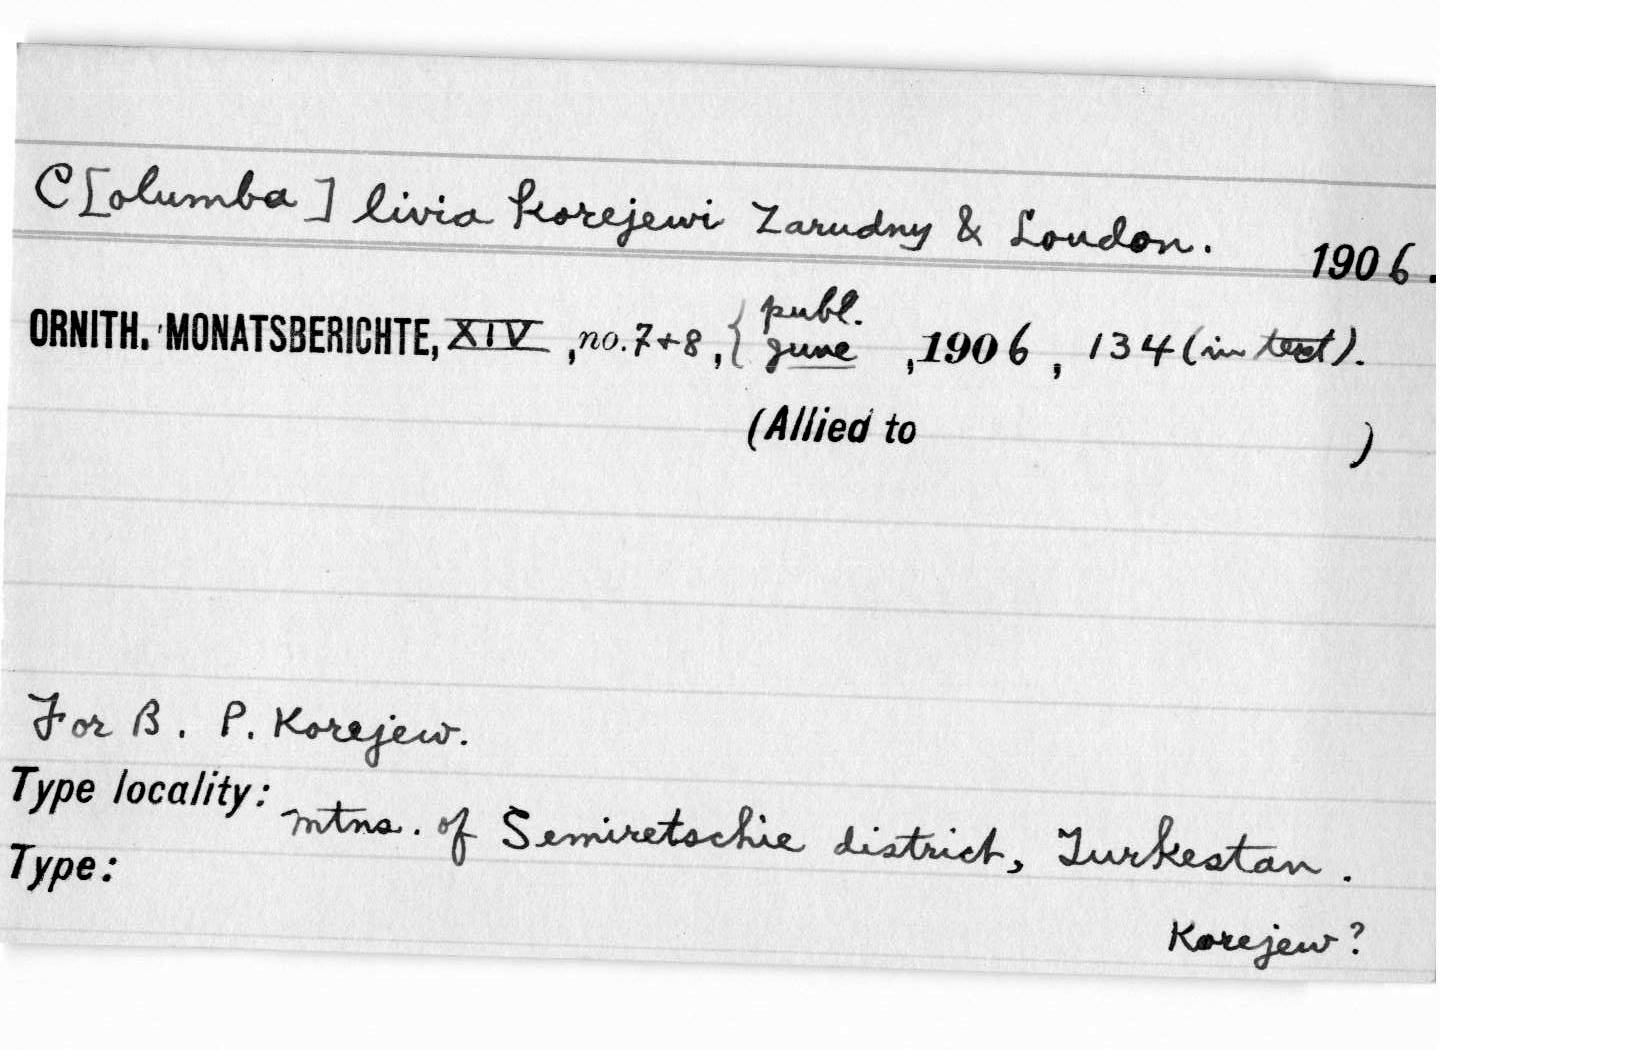 C[olumba] livia korejewi Zarudny & Loudon.
1906.
ORNITH. MONATSBERICHTE, XIV, no. 7+8, { publ. june, 1906, 134 (in text).
(Allied to )
For B. P. Korejew.
Type locality: mtns. of Semiretschie district, Turkestan.
Type:
Korejew?